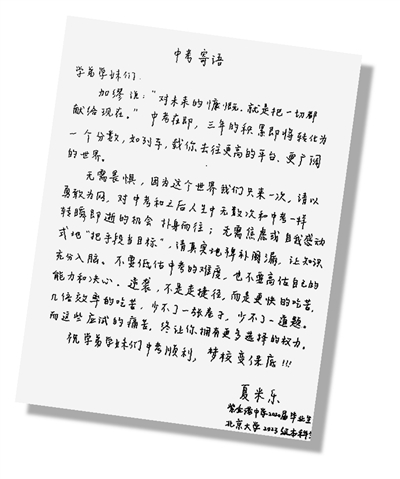 中考寄语
学弟学妹们:
加缪说:"对未来的慷慨,就是把一切都
献给现在。"中考在即,三年的积累即将转化为
一个分数,如列车,载你去往更高的平台、更广阔
的世界。
无需畏惧,因为这个世界我们只来一次,请以
勇敢为网,对中考和之后人生中无数次和中考一样
转瞬即逝的机会 扑身而往;无需焦虑或自我感动
式地"把手段当目标",请真实地稗补阙漏,让知识
充分入脑。不要低估中考的难度,也不要高估自己的
能力和决心。逆袭,不是走捷径,而是更快的吃苦,
几倍效率的吃苦,少不了一张卷子,少不了一道题。
而这些应试的痛苦,终让你拥有更多选择的权力。
祝学弟学妹们中考顺利,梦校变保底!!!
夏米乐
中学2020届毕业生
北京大学2023级本科生